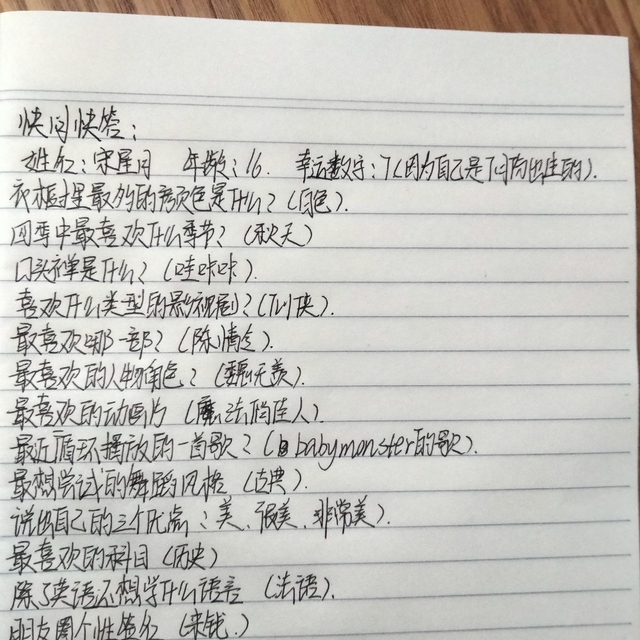 快问快答：
姓名：宋星月 年龄：16. 幸运数字：7(因为自己是7月份出生的).
衣柜里最多的颜色是什么？(白色).
四季中最喜欢什么季节？(秋天)
口头禅是什么？(哇咔咔).
喜欢什么类型的影视剧？(仙侠).
最喜欢哪一部？(陈情令).
最喜欢的人物角色？(魏无羡).
最喜欢的动画片 (魔法俏佳人).
最近循环播放的一首歌？(babymonster的歌).
最想尝试的舞蹈风格 (古典).
说出自己的三个优点：美、很美、非常美).
最喜欢的科目 (历史)
除了英语还想学什么语言 (法语).
朋友圈个性签名 (来钱.)